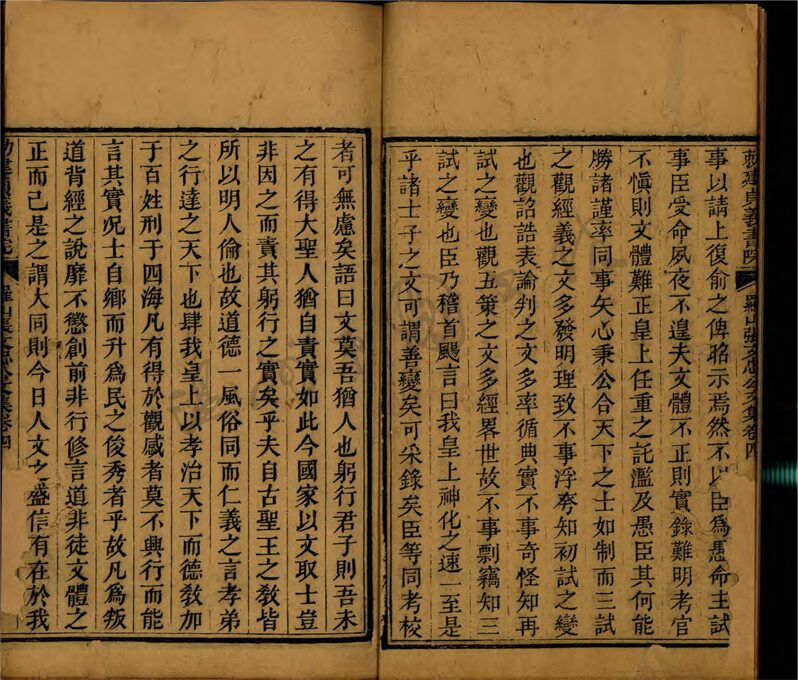 敕建貞義書院 羅山張文忠公文集卷四
事以請上復俞之俾昭示焉然不以臣為愚命主試
事臣受命夙夜不遑夫文體不正則實錄難明考官
不慎則文體難正皇上任重之託濫及愚臣其何能
勝諸謹率同事矢心秉公合天下之士如制而三試
之觀經義之文多發明理致不事浮夸知初試之變
也觀詔誥表論判之文多率循典實不事奇怪知再
試之變也觀五策之文多經畧世故不事剽竊知三
試之變也臣乃稽首颺言曰我皇上神化之速一至是
乎諸士子之文可謂善變矣可采錄矣臣等同考校
者可無慮矣語曰文莫吾猶人也躬行君子則吾未
之有得大聖人猶自責實如此今國家以文取士豈
非因之而責其躬行之實矣乎夫自古聖王之敎皆
所以明人倫也故道德一風俗同而仁義之言孝弟
之行達之天下也肆我皇上以孝治天下而德敎加
于百姓刑于四海凡有得於觀感者莫不興行而能
言其實况士自鄉而升為民之俊秀者乎故凡為叛
道背經之說靡不懲創前非行修言道非徒文體之
正而己是之謂大同則今日人文之盛信有在於我
羅山張文忠公文集卷四